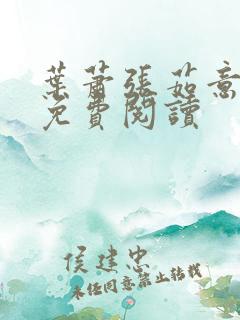 葉蕭張茹意
免費閱讀
侯建忠
未經同意禁止轉載